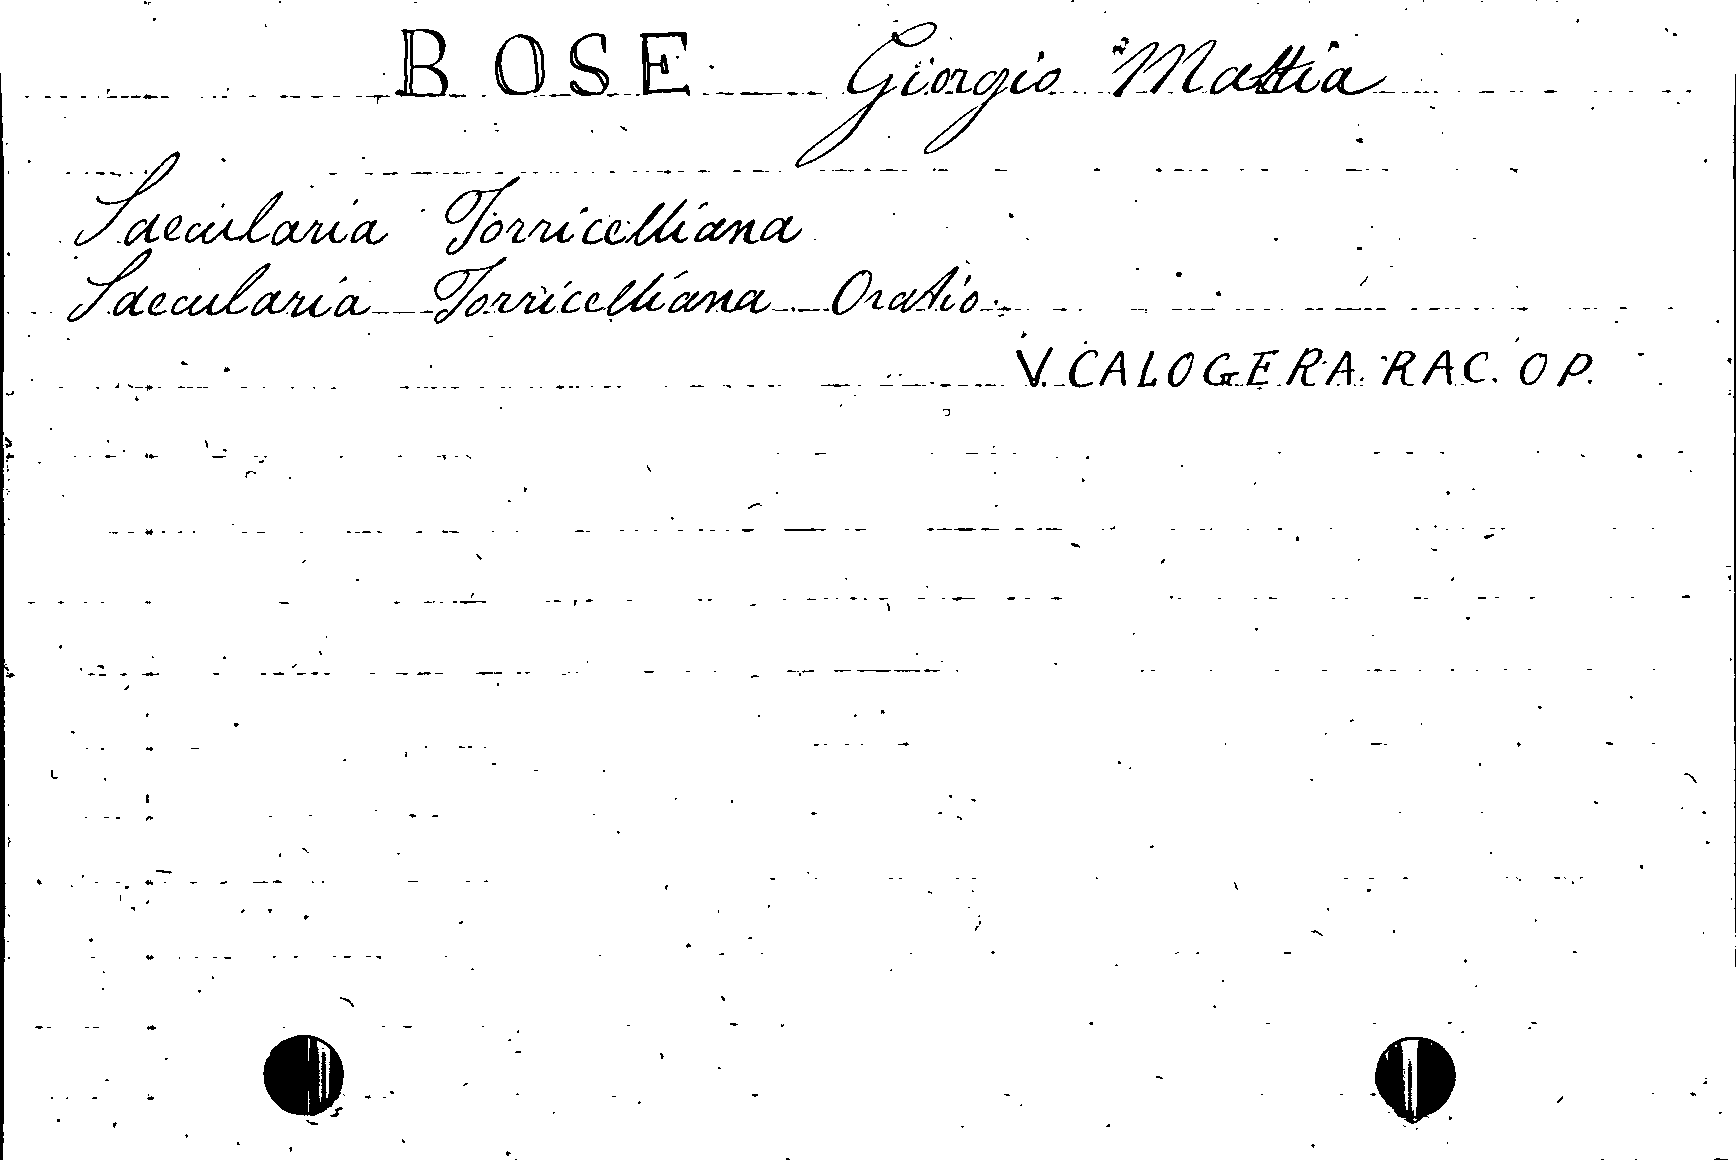 BOSE Giorgio Mattia
Saecularia Torricelliana
Saecularia Torricelliana Oratio.
V. CALOGERA. RAC. OP.